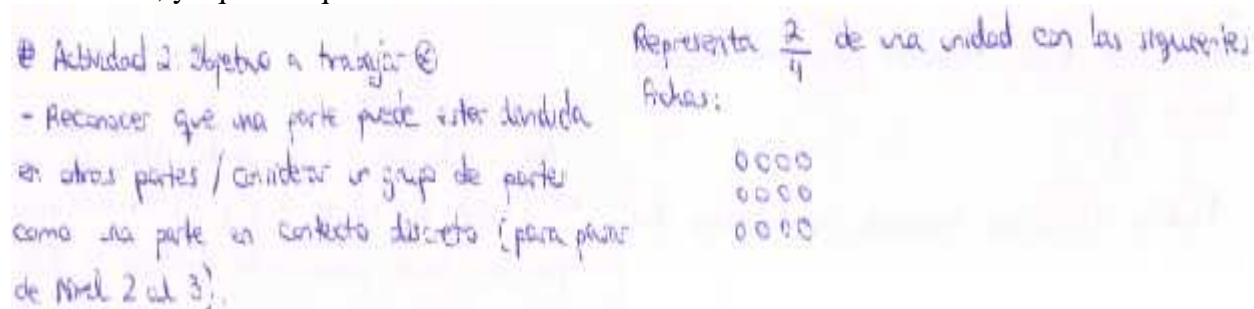 Actividad 2: Objetivo a trabajar ©
- Reconocer que una parte puede estar dividida
en otras partes / considerar un grupo de partes
como una parte en contexto discreto (para pasar
de Nivel 2 al 3).
Representa 2/4 de una unidad con las siguientes
fichas:
0000
0000
0000